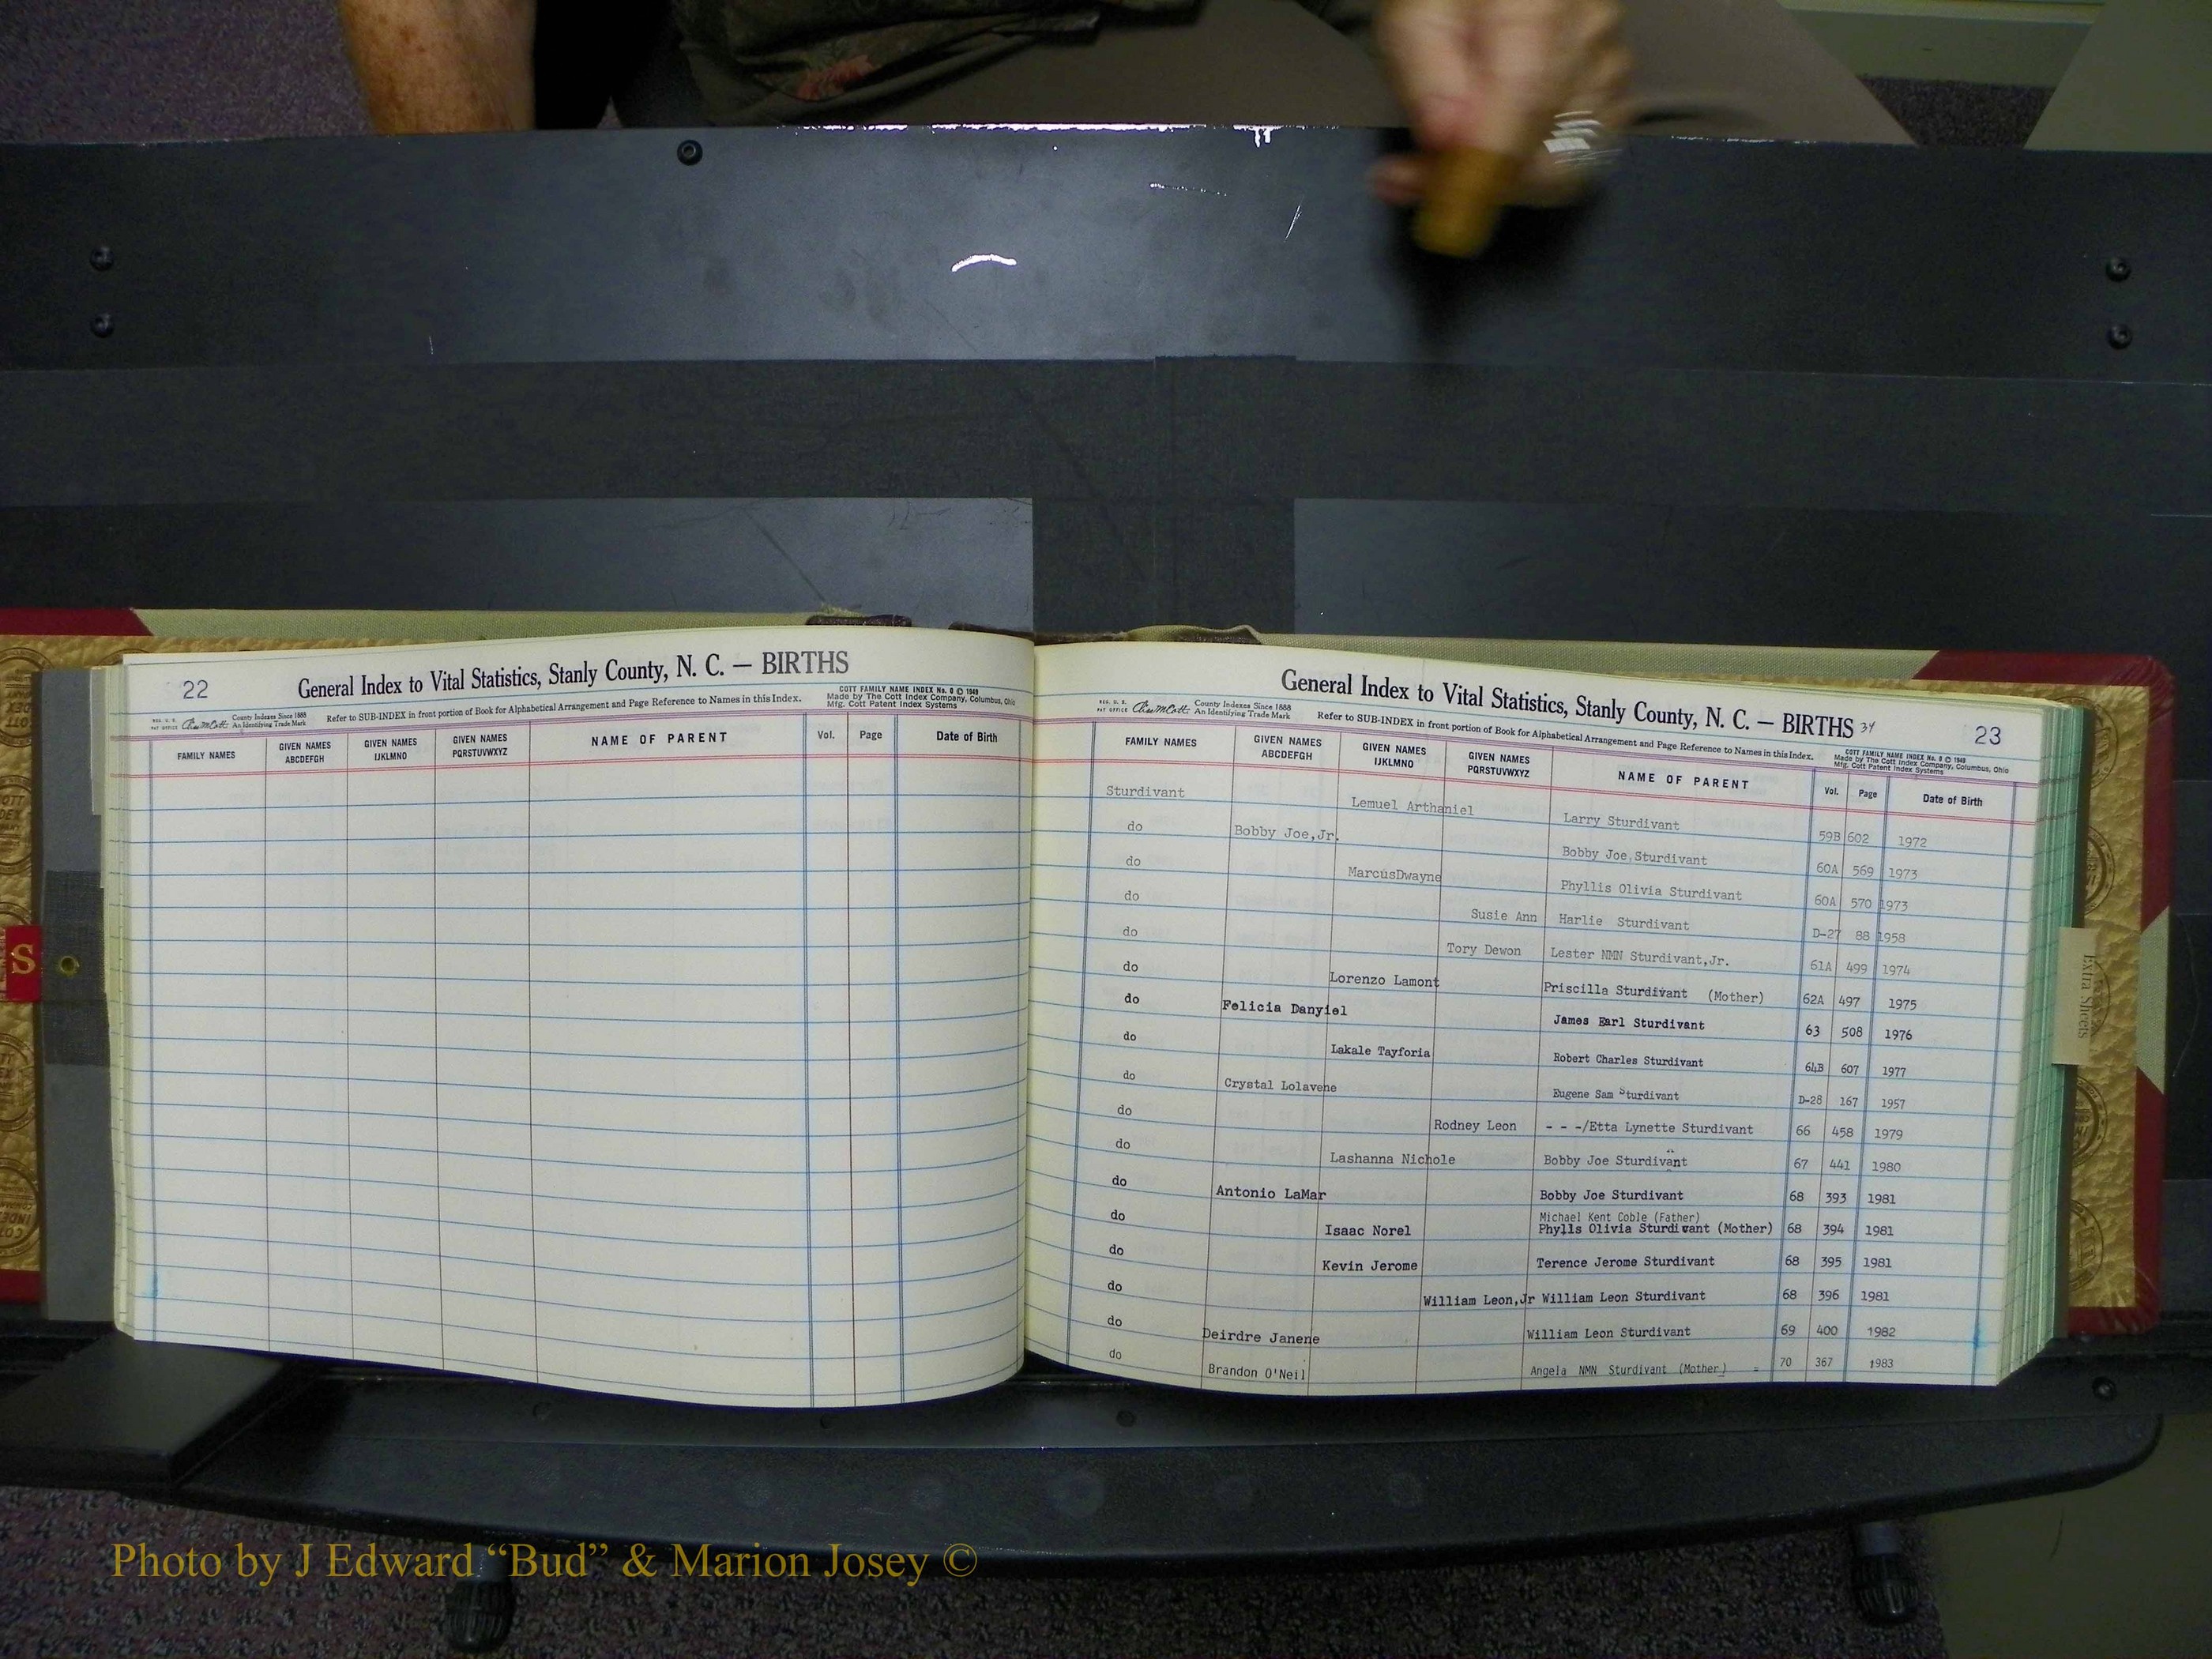 22
General Index to Vital Statistics, Stanly County, N. C. — BIRTHS
REG. U. S. PAT OFFICE County Indexes Since 1888 An Identifying Trade Mark
Refer to SUB-INDEX in front portion of Book for Alphabetical Arrangement and Page Reference to Names in this Index.
COTT FAMILY NAME INDEX No. 0 © 1949
Made by The Cott Index Company, Columbus, Ohio
Mfg. Cott Patent Index Systems
FAMILY NAMES GIVEN NAMES ABCDEFGH GIVEN NAMES IJKLMNO GIVEN NAMES PQRSTUVWXYZ NAME OF PARENT Vol. Page Date of Birth
S
General Index to Vital Statistics, Stanly County, N. C. — BIRTHS 34
23
REG. U. S. PAT OFFICE County Indexes Since 1888 An Identifying Trade Mark
Refer to SUB-INDEX in front portion of Book for Alphabetical Arrangement and Page Reference to Names in this Index.
COTT FAMILY NAME INDEX No. 0 © 1949
Made by The Cott Index Company, Columbus, Ohio
Mfg. Cott Patent Index Systems
FAMILY NAMES GIVEN NAMES ABCDEFGH GIVEN NAMES IJKLMNO GIVEN NAMES PQRSTUVWXYZ NAME OF PARENT Vol. Page Date of Birth
Sturdivant Lemuel Arthaniel Larry Sturdivant 59B 602 1972
do Bobby Joe,Jr. Bobby Joe Sturdivant 60A 569 1973
do MarcusDwayne Phyllis Olivia Sturdivant 60A 570 1973
do Susie Ann Harlie Sturdivant D-27 88 1958
do Tory Dewon Lester NMN Sturdivant,Jr. 61A 499 1974
do Lorenzo Lamont Priscilla Sturdivant (Mother) 62A 497 1975
do Felicia Danyiel James Earl Sturdivant 63 508 1976
do Lakale Tayforia Robert Charles Sturdivant 64B 607 1977
do Crystal Lolavene Eugene Sam Sturdivant D-28 167 1957
do Rodney Leon - - -/Etta Lynette Sturdivant 66 458 1979
do Lashanna Nichole Bobby Joe Sturdivant 67 441 1980
do Antonio LaMar Bobby Joe Sturdivant 68 393 1981
Michael Kent Coble (Father)
do Isaac Norel Phylls Olivia Sturdivant (Mother) 68 394 1981
do Kevin Jerome Terence Jerome Sturdivant 68 395 1981
do William Leon,Jr William Leon Sturdivant 68 396 1981
do Deirdre Janene William Leon Sturdivant 69 400 1982
do Brandon O'Neil Angela NMN Sturdivant (Mother) = 70 367 1983
Extra Sheets
Photo by J Edward “Bud” & Marion Josey ©